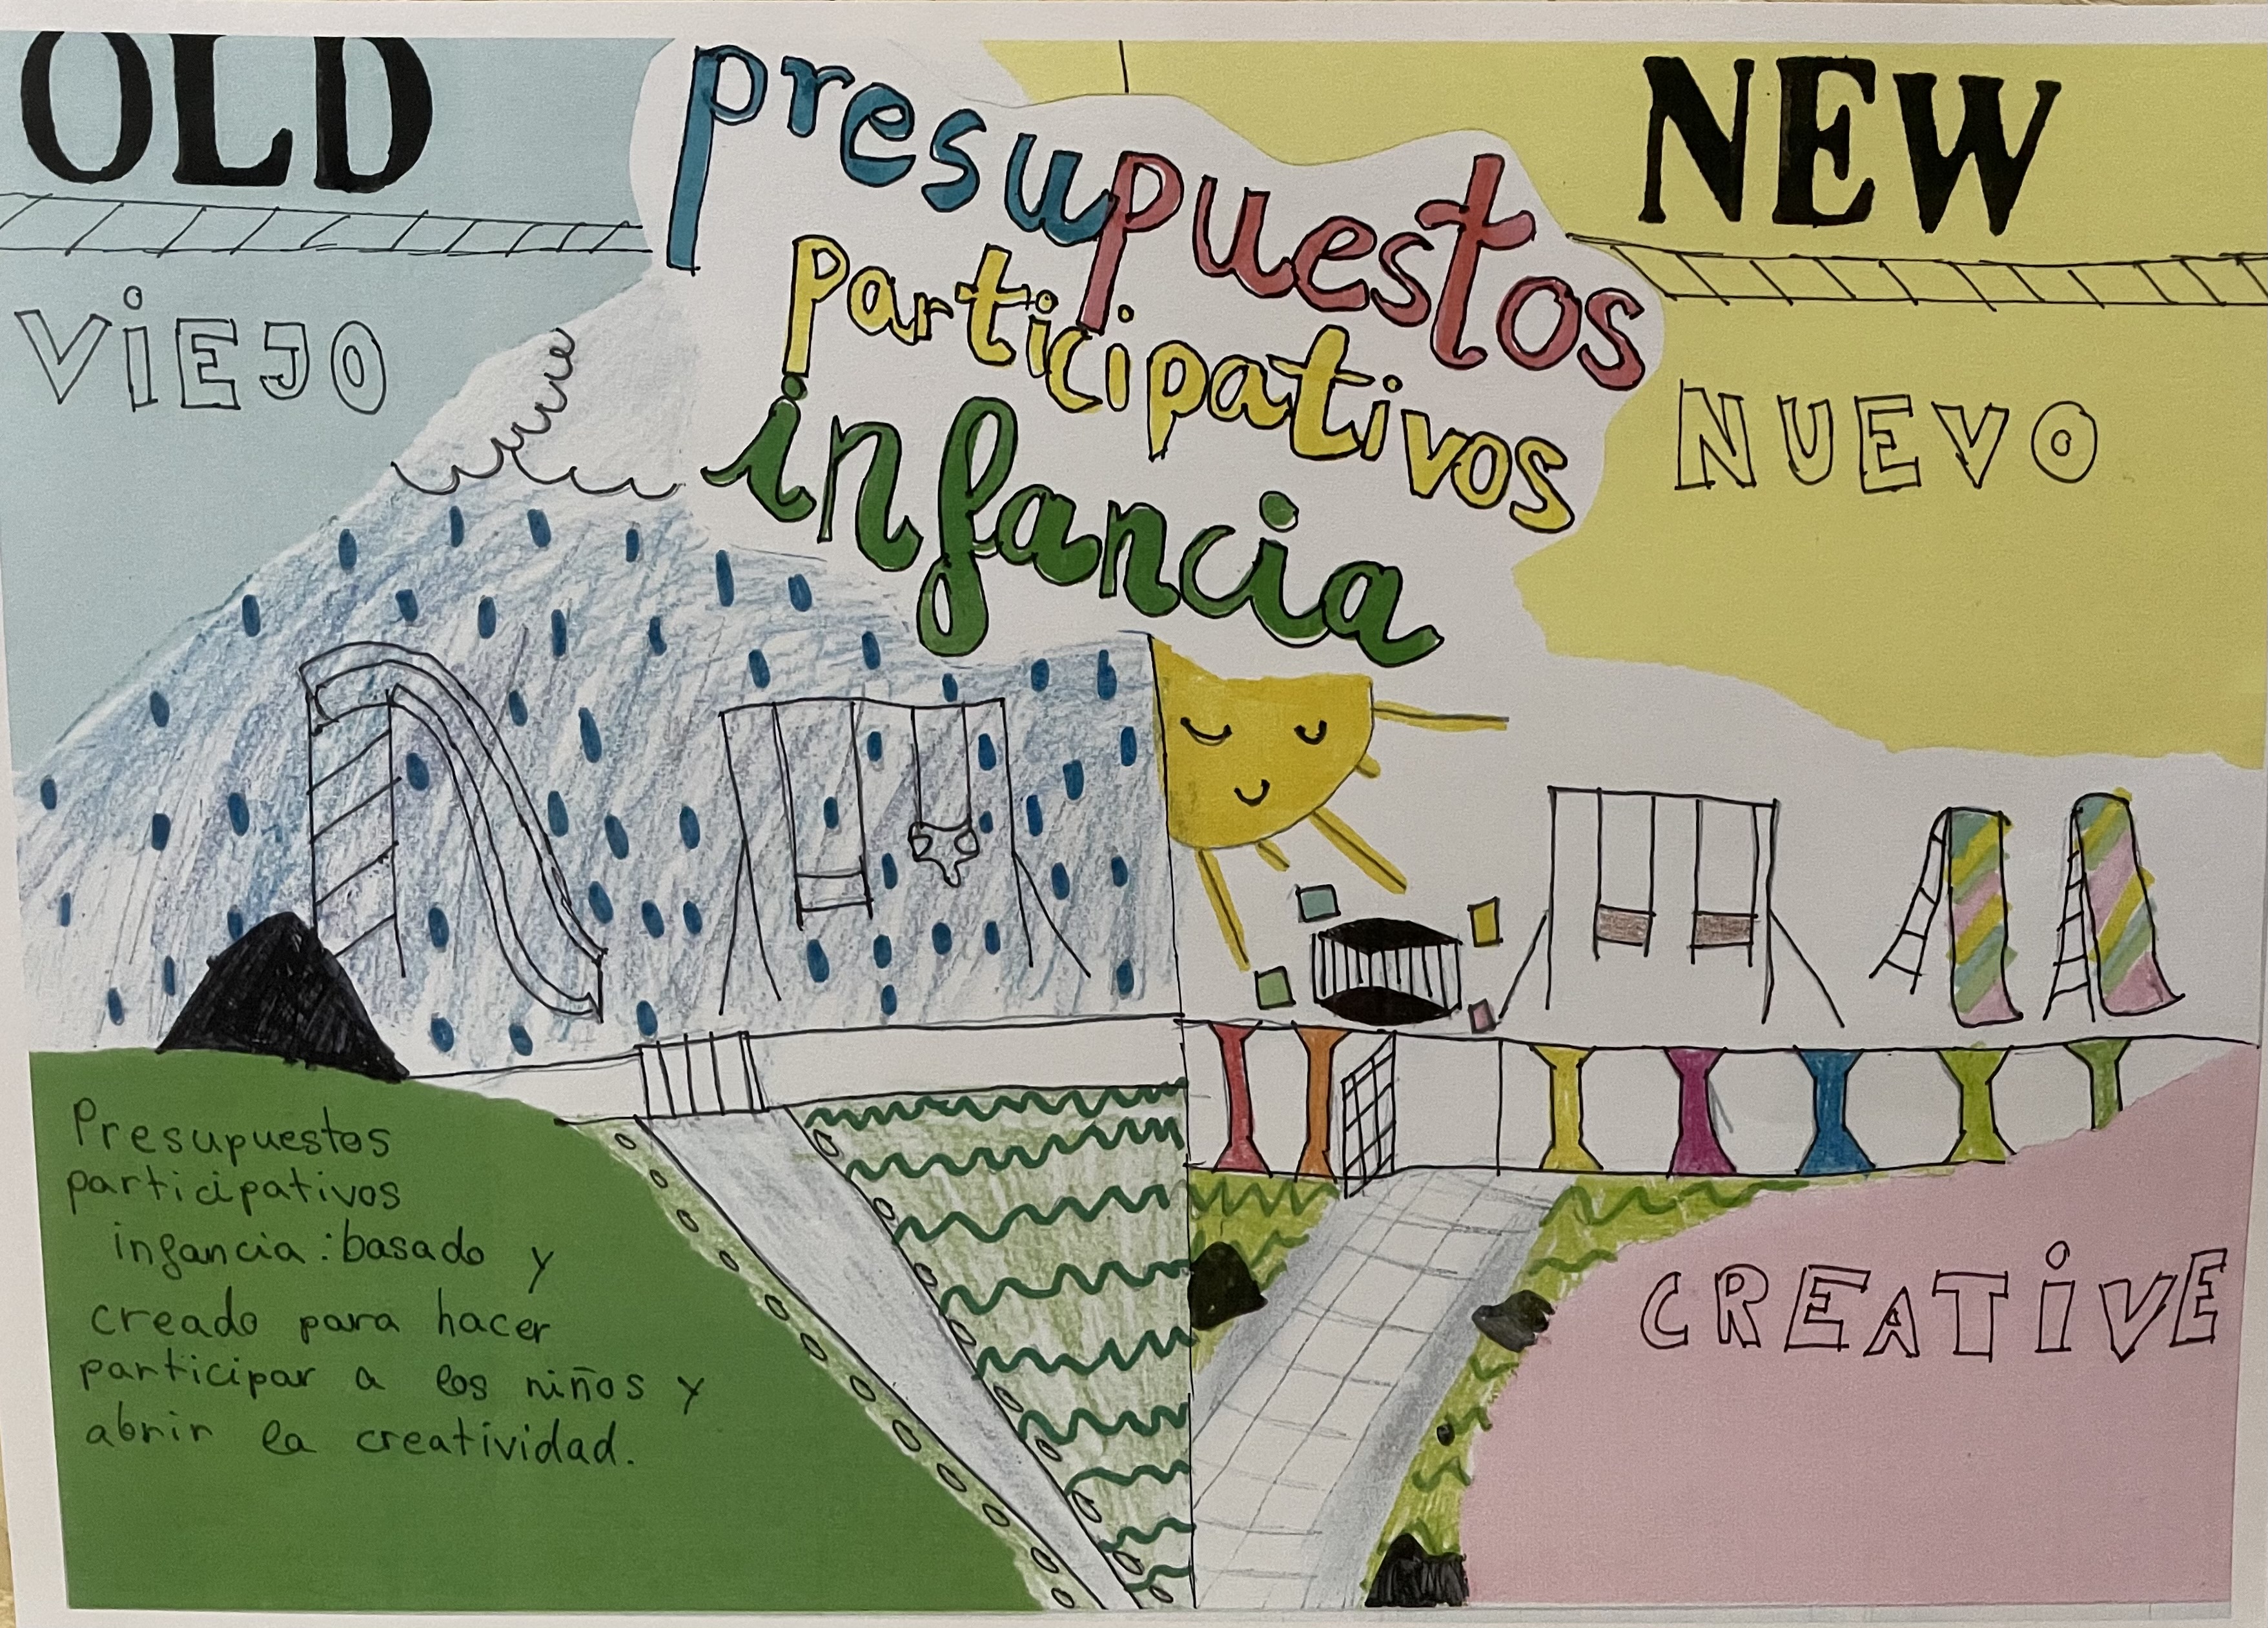 OLD
VIEJO
presupuestos
participativos
infancia
NEW
NUEVO
Presupuestos
participativos
infancia: basado y
creado para hacer
participar a los niños y
abrir la creatividad.
CREATIVE